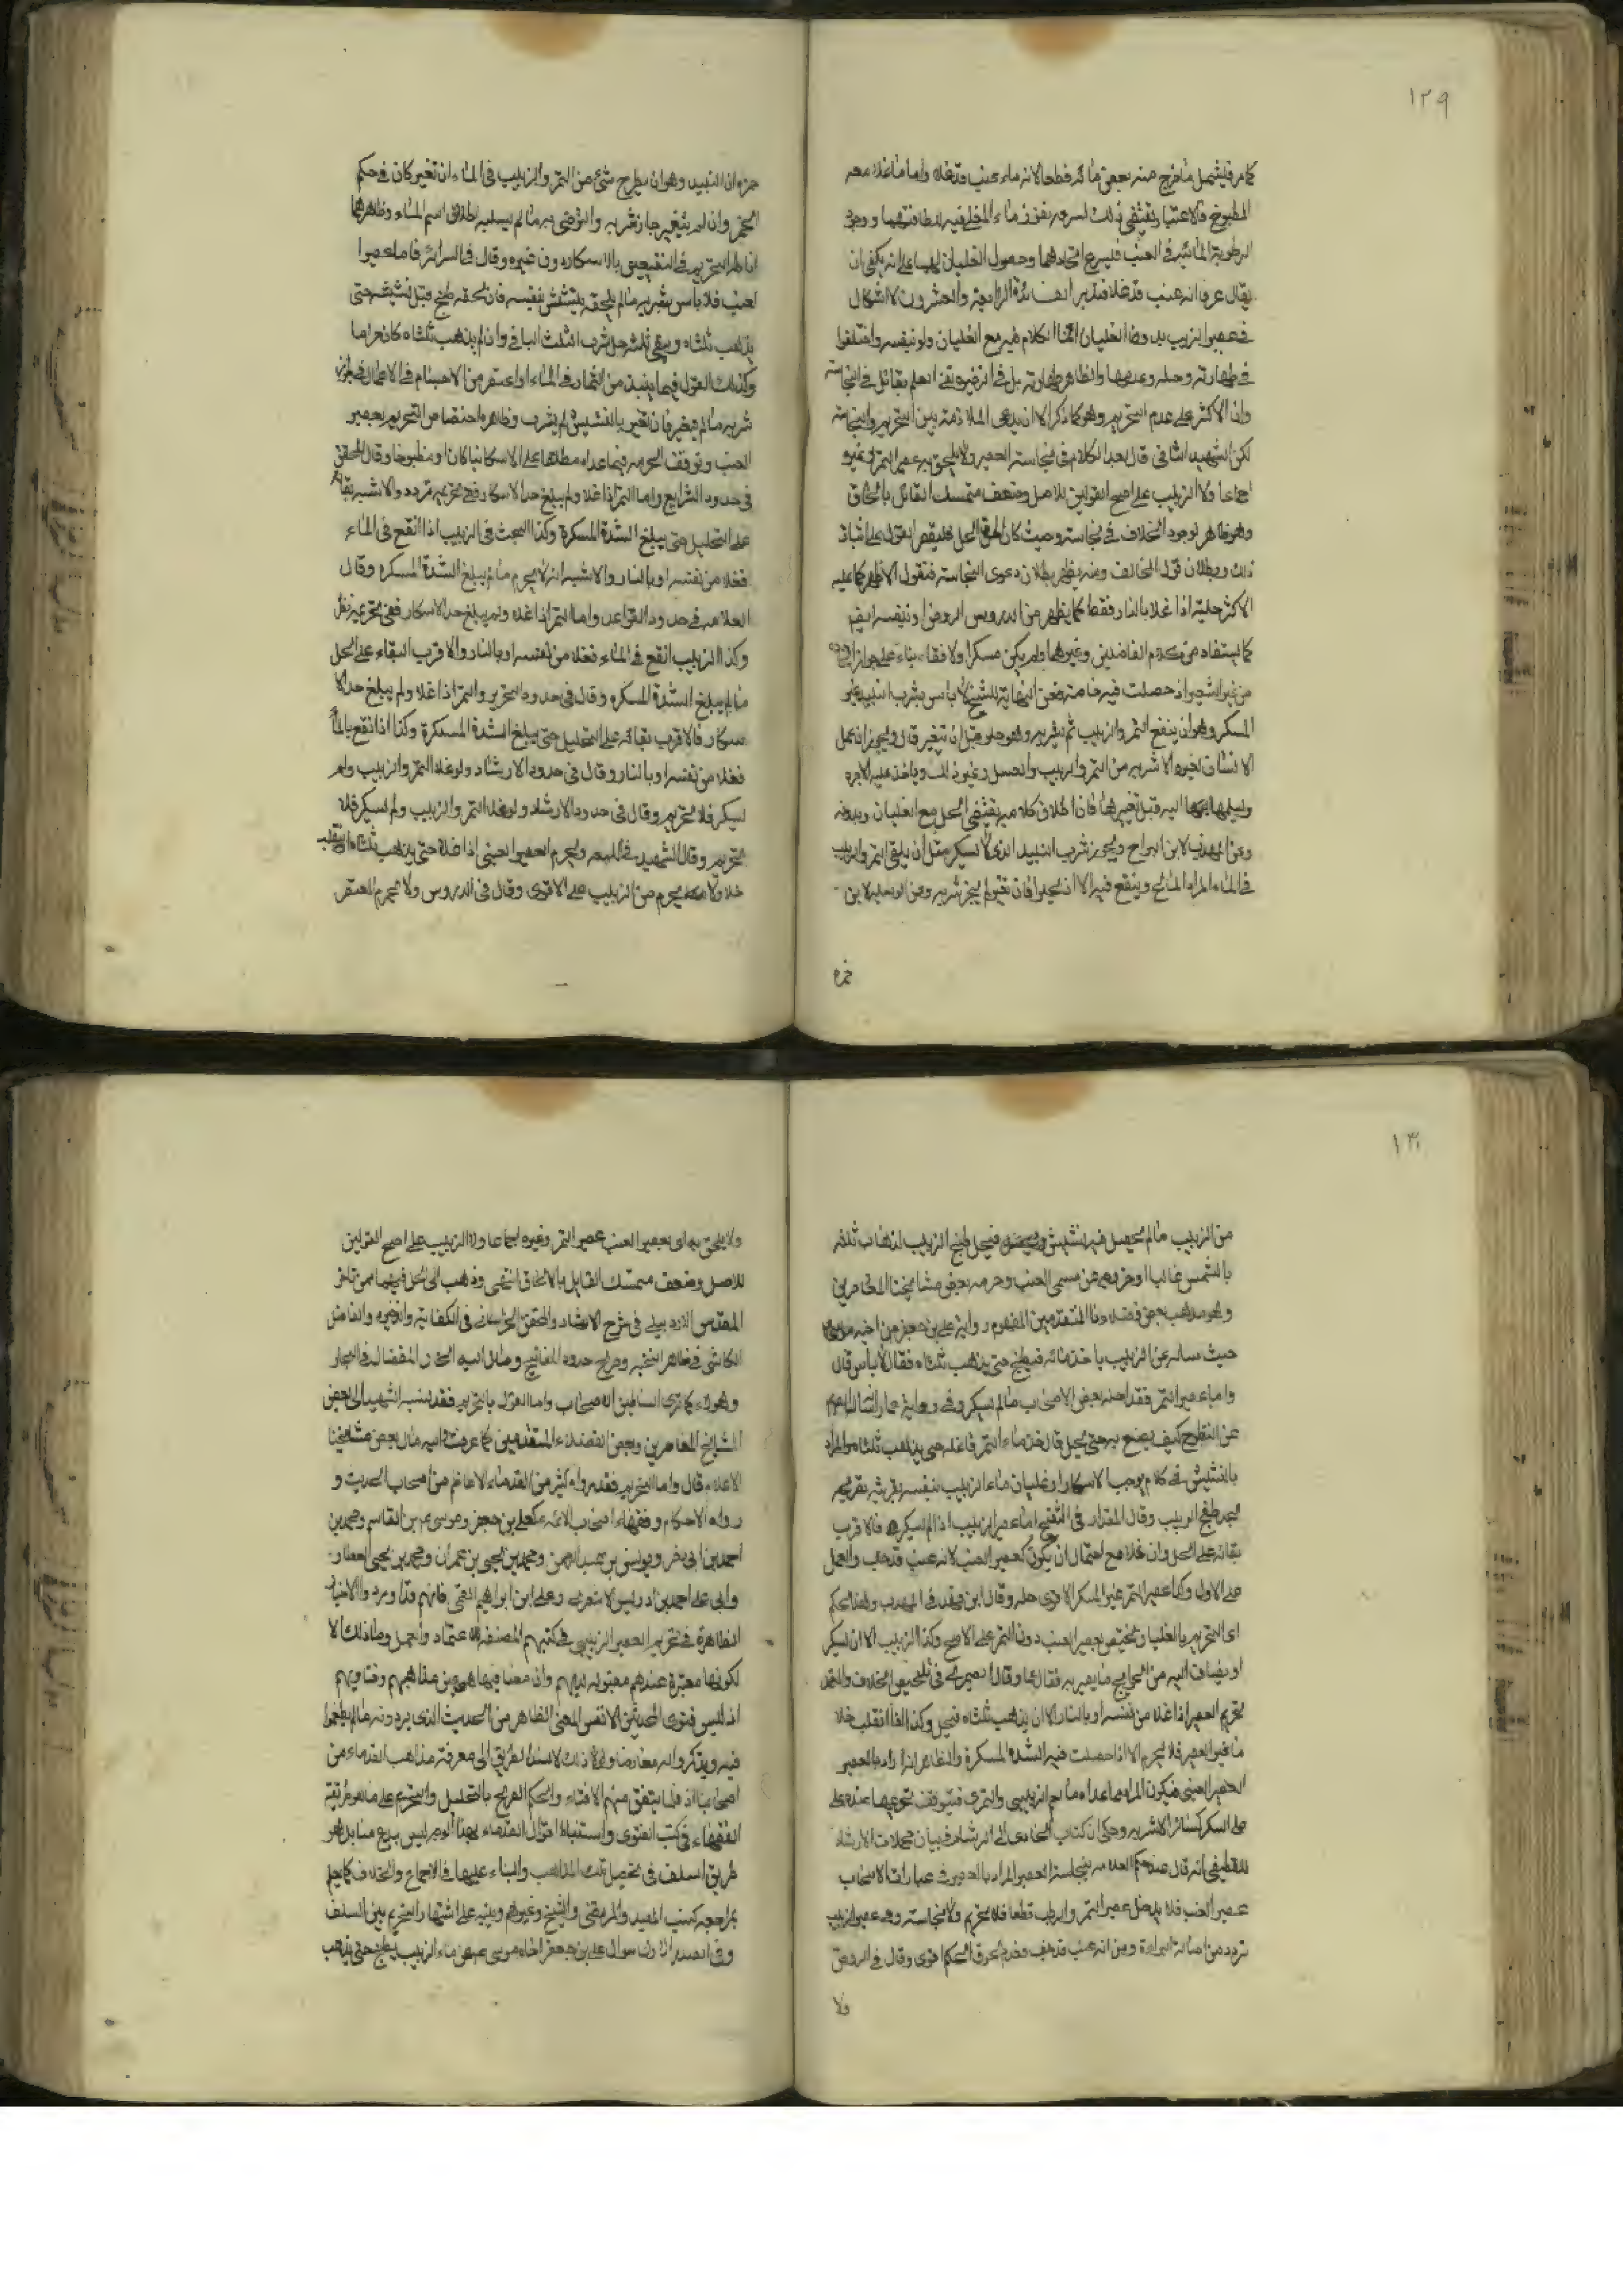 ١٢٩
كما مر فليشمل ما خرج منه بعض ماؤه قطعا لانه ماء عنب قد غلا واما ما غلا معه
المطبوخ فالاعتبار يقتضى ذلك لسرعة نفوذ ماء المغلى فيه
الرطوبة المائية فى العنب فليسرع اتحادهما وحصول الغليان
يقال عرفا انه عنب قد غلا فتدبر الفائدة الرابعة والعشرون لا اشكال
فى عصير الزبيب بدون الغليان انما الكلام فيه مع الغليان ولو بنفسه واختلفوا
فى طهارته وحله وعدمها والظاهر طهارته بل فى الذخيرة نفى العلم بقائل فى النجاسة
وان الاكثر على عدم التحريم وهو كما ذكر الا ان يدعى الملازمة بين التحريم والنجاسة
لكن الشهيد الثانى قال بعد الكلام فى نجاسة العصير ولا يلحق به عصير التمر وغيره
اجماعا ولا الزبيب على اصح القولين للاصل وضعف متمسك القائل بالحاق
وهو ظاهر لوجود الخلاف فى نجاسته وحيث كان الحق الحل فليقصر القول على اثبات
ذلك وبطلان قول المخالف ومنه يظهر بطلان دعوى النجاسة فنقول الاظهر كما عليه
الاكثر حليته اذا غلا بالنار فقط كما يظهر من الدروس الروض او بنفسه ايضا
كما يستفاد من كلام الفاضلين وغيرهما ولم يكن مسكرا ولا فقاء بناء على جواز
من غير الشعير اذ حصلت فيه خاصته فعن النهاية للشيخ لا باس بشرب النبيذ غير
المسكر وهو ان ينقع التمر والزبيب ثم يشربه وهو حلو قبل ان يتغير قال ويجوز ان يعمل
الانسان لغيره الاشربه من التمر والزبيب والعسل وغير ذلك وياخذ عليه الاجرة
ويسلمها اليه قبل تغييرها فان اطلاق كلامه يقتضى الحل مع الغليان وبدونه
وعن المهذب لابن البراج ويجوز شرب النبيذ الذى لا يسكر مثل ان يلقى التمر والزبيب
فى الماء المر او المالح وينقع فيه الا ان يحلوا فان تغير لم يجز شربه وعن الوسيلة لابن
حمزة
حمزة ان النبيذ وهو ان يطرح شئ من التمر والزبيب فى الماء ان تغير كان فى حكم
الخمر وان لم يتغير جاز شربه والتوضى به ما لم يسلبه اطلاق اسم الماء وظاهرهما
اناطة التحريم فى النقيعين بالاسكار دون غيره وقال فى السرائر فاما عصير
العنب فلا باس بشربه ما لم يلحقه نشيش بنفسه فان لحقه طبخ قبل نشيشه حتى
يذهب ثلثاه ويبقى ثلثه حل شرب الثلث الباقى وان لم يذهب ثلثاه كان حراما
وكذلك القول فيما ينبذ من الثمار فى الماء او اعتصر من الاجسام فى الاعمال فى جواز
شربه ما لم يتغير فان تغير بالنشيش لم يشرب وظاهره اختصاص التحريم بعصير
العنب وتوقف الحرمة فيما عداه مطلقا على الاسكار نيا كان او مطبوخا وقال المحقق
فى حدود الشرايع واما التمر اذا غلا ولم يبلغ حد الاسكار ففى تحريمه تردد والاشبه بقاؤه
على التحليل حتى يبلغ الشدة المسكرة وكذا البحث فى الزبيب اذا انقع فى الماء
فغلا من نفسه او بالنار والاشبه انه لا يحرم ما لم يبلغ الشدة المسكره وقال
العلامه فى حدود القواعد واما التمر اذا غلا ولم يبلغ حد الاسكار ففى تحريمه نظر
وكذا الزبيب انقع فى الماء فغلا من نفسه او بالنار والاقرب البقاء على الحل
ما لم يبلغ الشدة المسكره وقال فى حدود التحرير والتمر اذا غلا ولم يبلغ حد الا
سكار فالاقرب بقائه على التحليل حتى يبلغ الشدة المسكرة وكذا اذا نقع بالماء
فغلا من نفسه او بالنار وقال فى حدود الارشاد ولو غلا التمر والزبيب ولم
يسكر فلا تحريم وقال فى حدود الارشاد ولو غلا التمر والزبيب ولم يسكر فلا
تحريم وقال الشهيد فى اللمعه ويحرم العصير العنبى اذا غلا حتى يذهب ثلثاه او ينقلب
خلا ولا يحرم من الزبيب على الاقوى وقال فى الدروس ولا يحرم المعتصر
١٣٠
من الزبيب ما لم يحصل فيه نشيش فيحل طبخ الزبيب لذهاب ثلثيه
بالشمس غالبا او خروجه عن مسمى العنب وحرمه بعض مشايخنا المعاصرين
وهو مذهب بعض فضلائنا المتقدمين لمفهوم رواية على بن جعفر عن اخيه موسى
حيث ساله عن الزبيب ياخذ مائه فيطبخ حتى يذهب ثلثاه فقال لا باس قال
واما عصير التمر فقد احله بعض الاصحاب ما لم يسكر وفى رواية عمار
عن النضوح كيف يصنع به حتى يحل قال خذ ماء التمر فاغله حتى يذهب ثلثاه والمراد
بالنشيش فى كلامه يوجب الاسكار او غليان ماء الزبيب بنفسه بقرينة تفريعه
بمجرد طبخ الزبيب وقال المقداد فى التنقيح اما عصير الزبيب اذا لم يسكر فالاقرب
بقائه على الحل وان غلا مع احتمال ان يكون كعصير العنب لانه عنب قد جف والعمل
على الاول وكذا عصير التمر غير المسكر الاقوى حله وقال ابن فهد فى المهذب وهذا الحكم
اى التحريم بالغليان مختص بعصير العنب دون التمر على الاصح وكذا الزبيب الا ان يسكر
او يضاف اليه من الحوايج ما يصير به فقاعا وقال الصيمرى فى تلخيص الخلاف والمعتمد
تحريم العصير اذا غلا من نفسه او بالنار الا ان يذهب ثلثاه فيحل وكذا اذا انقلب خلا
ما غير العصير فلا يحرم الا اذا حصلت فيه الشدة المسكرة والظاهر انه اراد بالعصير
العصير العنبى فيكون المراد بما عداه ما يعم الزبيبى والتمرى فيتوقف تحريمها عنده على
على السكر كسائر الاشربه وحكى ان كتاب الهادى الى الرشاد فى بيان مجملات الارشاد
للقطيفى انه قال عند حكم العلامه بنجاسة العصير المراد بالعصير فى عبارات الاصحاب
عصير العنب فلا يدخل عصير التمر والرطب قطعا فلا تحريم ولا نجاسة وفى عصير الزبيب
تردد من اصالة البراءة ومن انه عنب قد جف وعدم لحوق الحكم اقوى وقال فى الروض
ولا
ولا يلحق به اى بعصير العنب عصير التمر وغيره اجماعا ولا الزبيب على اصح القولين
للاصل وضعف متمسك القايل بالالحاق انتهى وذهب الى الحل فيهما ممن تاخر
المقدس الاردبيلى فى شرح الارشاد والمحقق الخراسانى فى الكفاية والذخيرة والفاضل
الكاشى فى ظاهر النخبه وصريح حدود المفاتيح ومال اليه المفضال فى البحار
وهؤلاء كما ترى اساطين الاصحاب واما القول بالتحريم فقد نسبه الشهيد الى بعض
المشايخ المعاصرين وبعض الفضلاء المتقدمين كما عرفت واليه مال بعض مشايخنا
الاعلام قال واما التحريم فقد رواه كثير من القدماء الاعاظم من اصحاب الحديث و
رواة الاحكام وفقهاء اصحاب الائمه كعلى بن جعفر وموسى بن القاسم ومحمد بن
احمد بن ابى نصر ويونس بن عبد الرحمن ومحمد بن يحيى بن عمران ومحمد بن يحيى العطار
وابى على احمد بن ادريس الاشعرى وعلى ابن ابراهيم القمى فانهم قد اوردوا الاخبار
الظاهرة فى تحريم العصير الزبيبى فى كتبهم المصنفة للاعتماد والعمل وما ذلك الا
لكونها معتبرة عندهم مقبولة لديهم وان مضامينها هى من مذاهبهم وفتاويهم
اذ ليس فتوى المحدثين الا نفس المعنى الظاهر من الحديث الذى يردونه ما لم يطعنوا
فيه ويذكروا له معارضا ولولا ذلك لانسد الطريق الى معرفة مذاهب القدماء من
اصحابنا اذ قلما يتفق منهم الافتاء والحكم الصريح بالتحليل والتحريم على ما هو طريقة
الفقهاء فى كتب الفتوى واستنباط اقوال القدماء بهذا الوجه ليس ببدع منا بل هو
طريق السلف فى تحصيل تلك المذاهب والبناء عليها فى الاجماع والخلاف كما يعلم
بمراجعه كتب المفيد والمرتضى والشيخ وغيرهم وينبه على اشتهار التحريم بين السلف
سوال على بن جعفر اخاه موسى عن ماء الزبيب يطبخ حتى يذهب